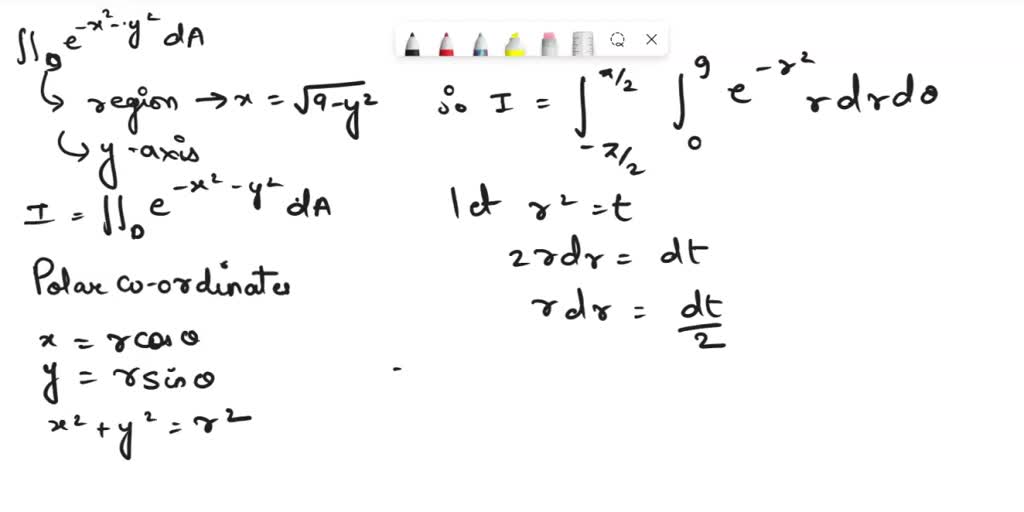 ∬_D e^{-x²-y²} dA
↳ region → x = √(9-y²)
↳ y-axis
I = ∬_D e^{-x²-y²} dA
Polar co-ordinates
x = r cos θ
y = r sin θ
x² + y² = r²
So I = ∫_{-π/2}^{π/2} ∫_0^9 e^{-r²} r dr dθ
let r² = t
2rdr = dt
rdr = dt/2